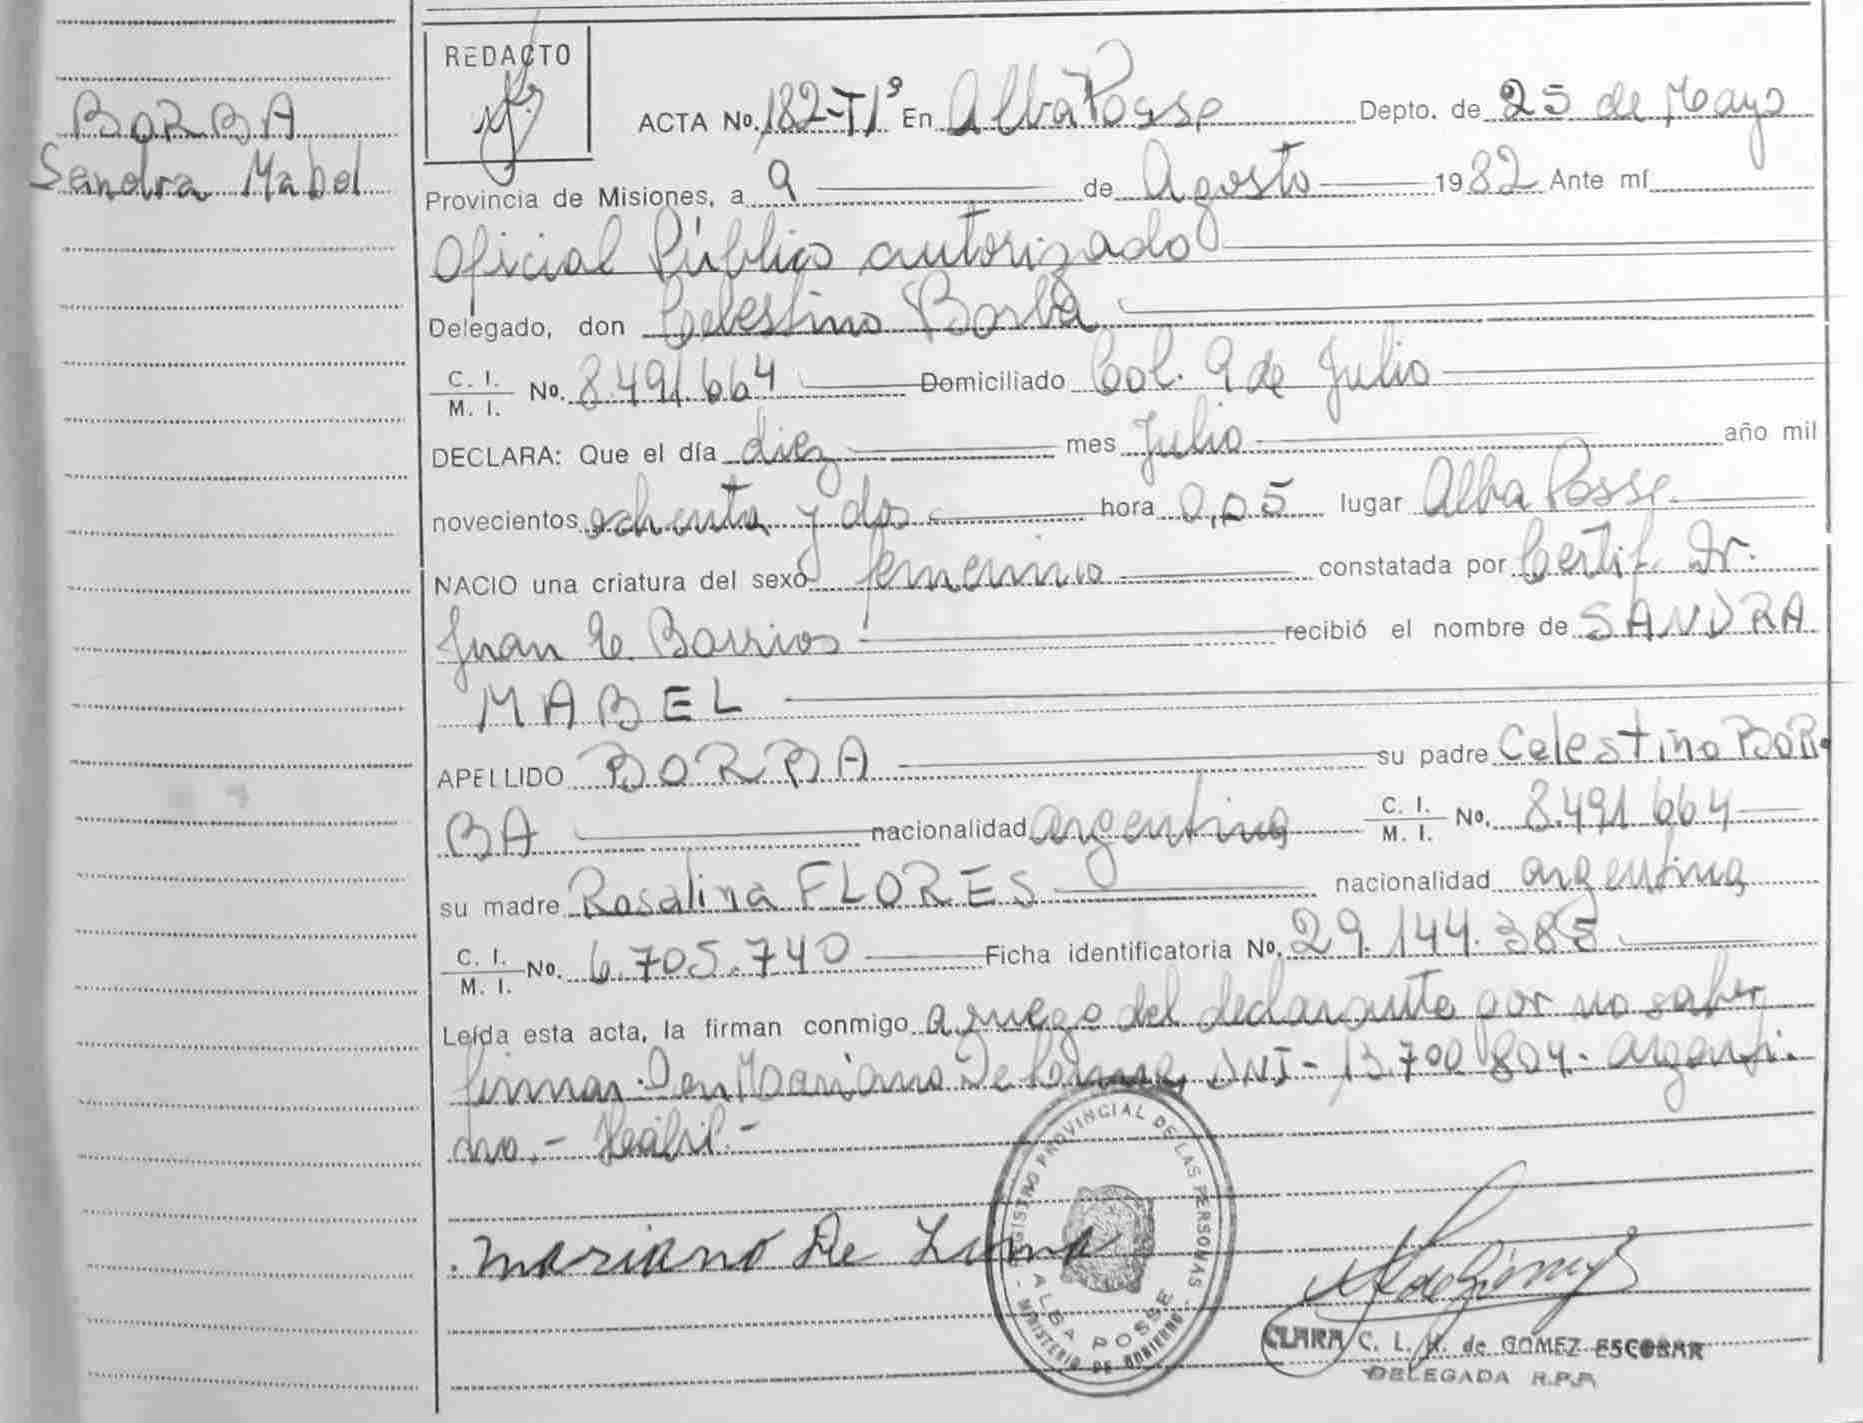 BORBA
Sandra Mabel
REDACTO
ACTA No. 182-T1º En Alba Posse Depto. de 25 de Mayo
Provincia de Misiones, a 9 de Agosto 1982 Ante mí
Oficial Público autorizado
Delegado, don Celestino Borba
C. I. / M. I. No. 8.491.664 Domiciliado Col. 9 de Julio
DECLARA: Que el día diez mes Julio año mil
novecientos ochenta y dos hora 0,05 lugar Alba Posse
NACIO una criatura del sexo femenino constatada por Certif. Dr.
Juan C. Barrios recibió el nombre de SANDRA
MABEL
APELLIDO BORBA su padre Celestino BOR-
BA nacionalidad argentina C. I. / M. I. No. 8.491.664
su madre Rosalina FLORES nacionalidad argentina
C. I. / M. I. No. 6.705.740 Ficha identificatoria No. 29.144.385
Leída esta acta, la firman conmigo a ruego del declarante por no saber
firmar. Don Mariano De Lima, DNI - 13.700.804. argenti-
no. - Hábil. -
Mariano De Lima
REGISTRO PROVINCIAL DE LAS PERSONAS
ALBA POSSE
MINISTERIO DE GOBIERNO
CLARA C. L. H. de GOMEZ ESCOBAR
DELEGADA R.P.P.